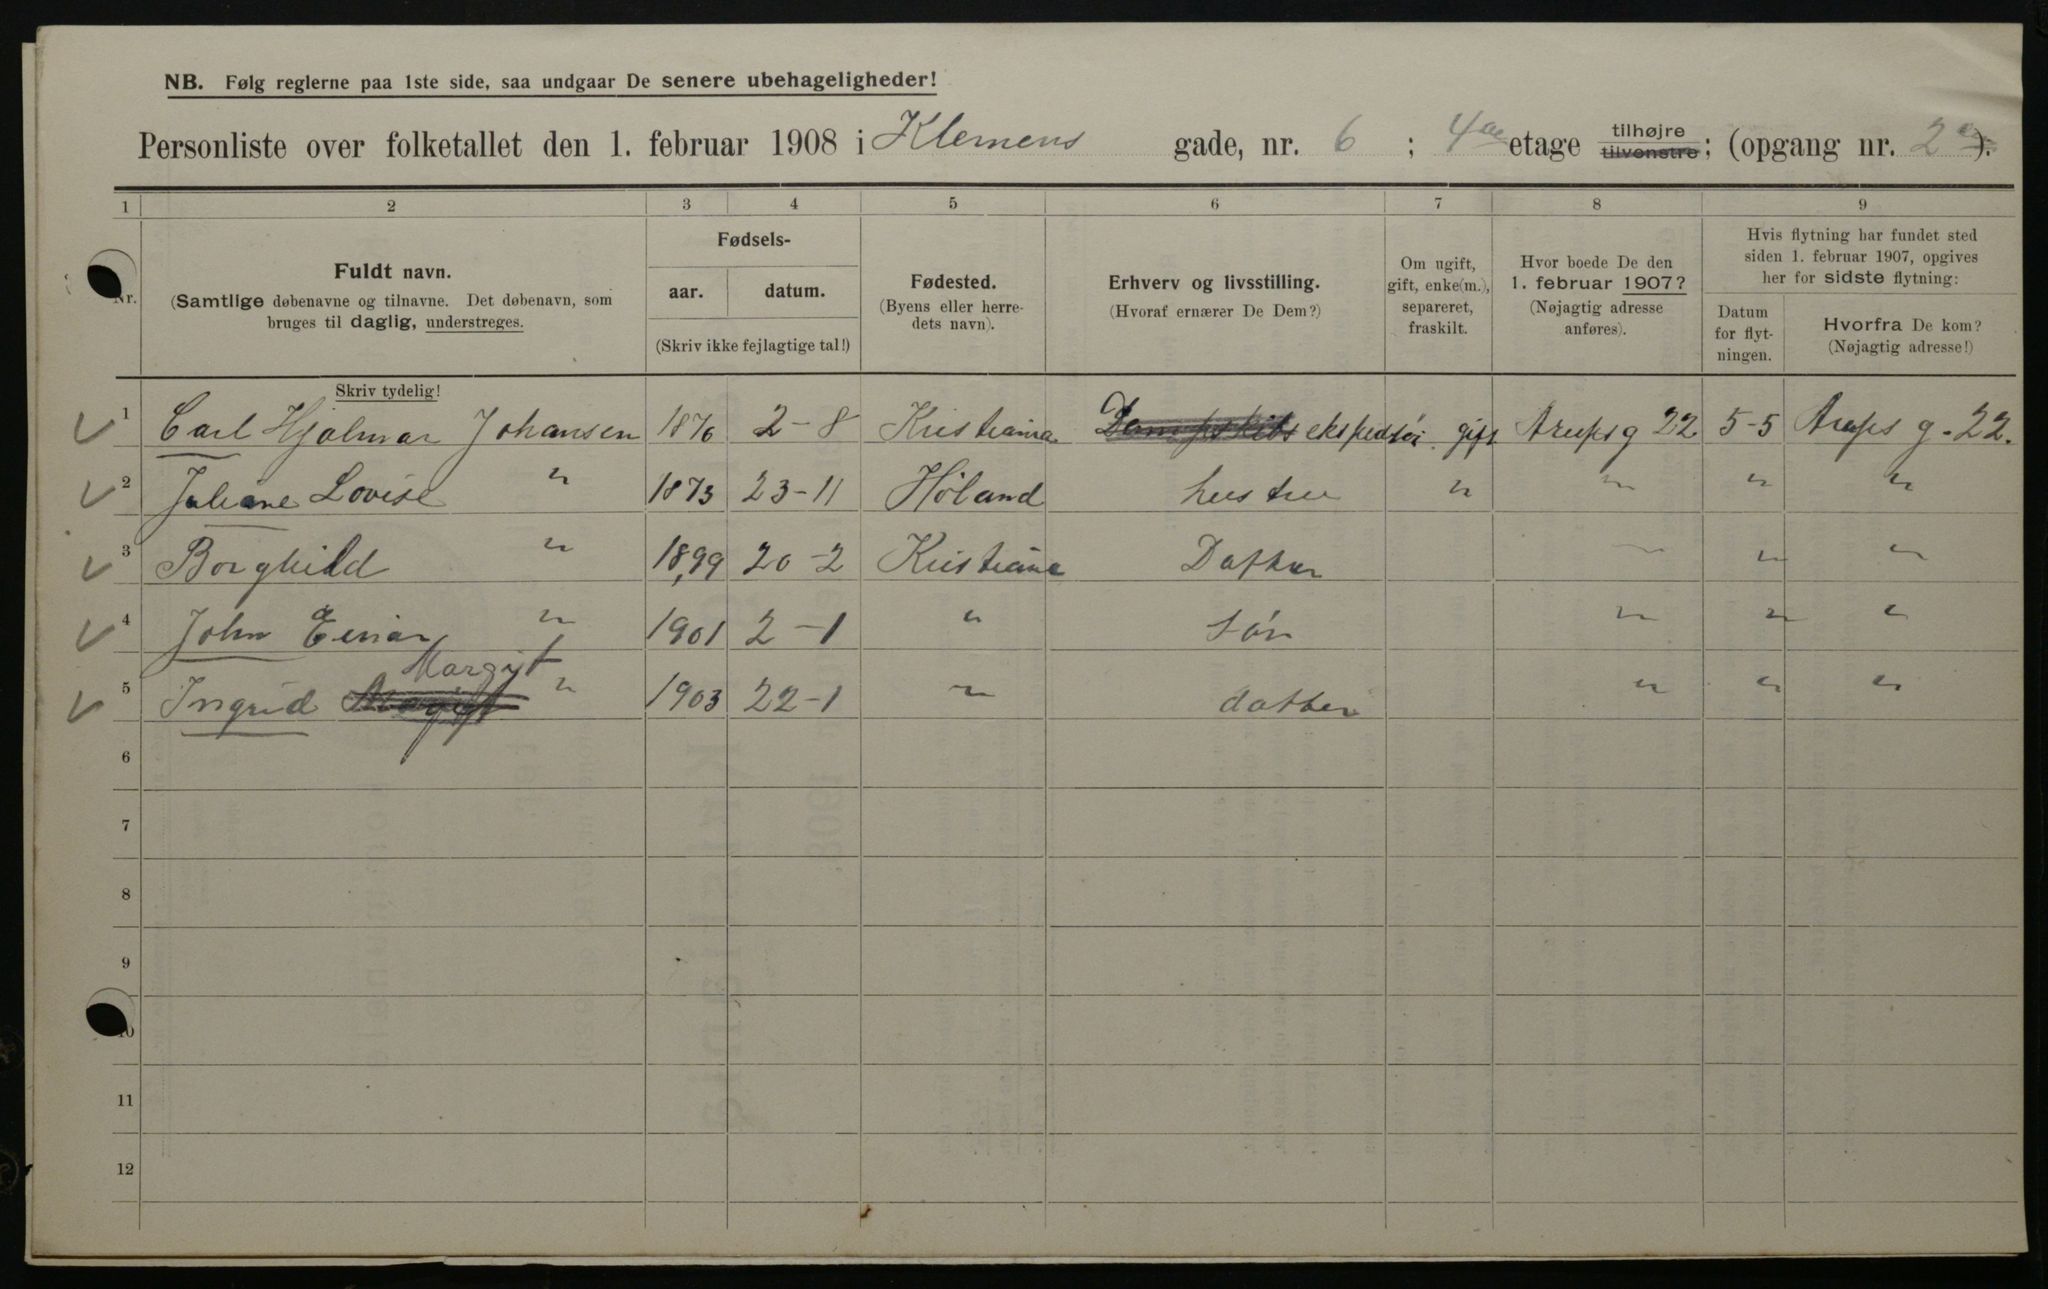 NB. Følg reglerne paa 1ste side, saa undgaar De senere ubehageligheder!
Personliste over folketallet den 1. februar 1908 i Klemens gade, nr. 6 ; 4de etage tilhøjre tilvenstre; (opgang nr. 2 ).
1 2 3 4 5 6 7 8 9
Nr.
Fuldt navn.
(Samtlige døbenavne og tilnavne. Det døbenavn, som
bruges til daglig, understreges.
Skriv tydelig!
Fødsels-
aar. datum.
(Skriv ikke fejlagtige tal!)
Fødested.
(Byens eller herre-
dets navn).
Erhverv og livsstilling.
(Hvoraf ernærer De Dem?)
Om ugift,
gift, enke(m.),
separeret,
fraskilt.
Hvor boede De den
1. februar 1907?
(Nøjagtig adresse
anføres).
Hvis flytning har fundet sted
siden 1. februar 1907, opgives
her for sidste flytning:
Datum
for flyt-
ningen.
Hvorfra De kom?
(Nøjagtig adresse!)
1 Carl Hjalmar Johansen 1876 2-8 Kristiania Dampskibs ekspedsör gift Arupsg 22 5-5 Arups g. 22.
2 Juliane Lovise " 1873 23-11 Höland hustru " " " "
3 Borghild " 1899 20-2 Kristiania Datter " " "
4 John Einar " 1901 2-1 " Sön " " "
Margit
5 Ingrid Margit " 1903 22-1 " datter " " "
6
7
8
9
10
11
12